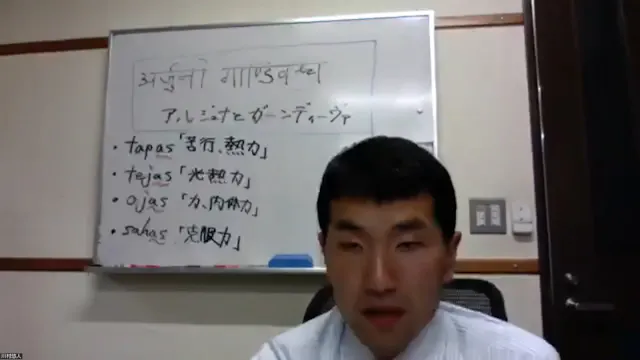 अर्जुनो गाण्डिवश्च
アルジュナとガーンディーヴァ
・tapas「苦行、熱力」
・tejas「光熱力」
・ojas「力、肉体力」
・sahas「克服力」